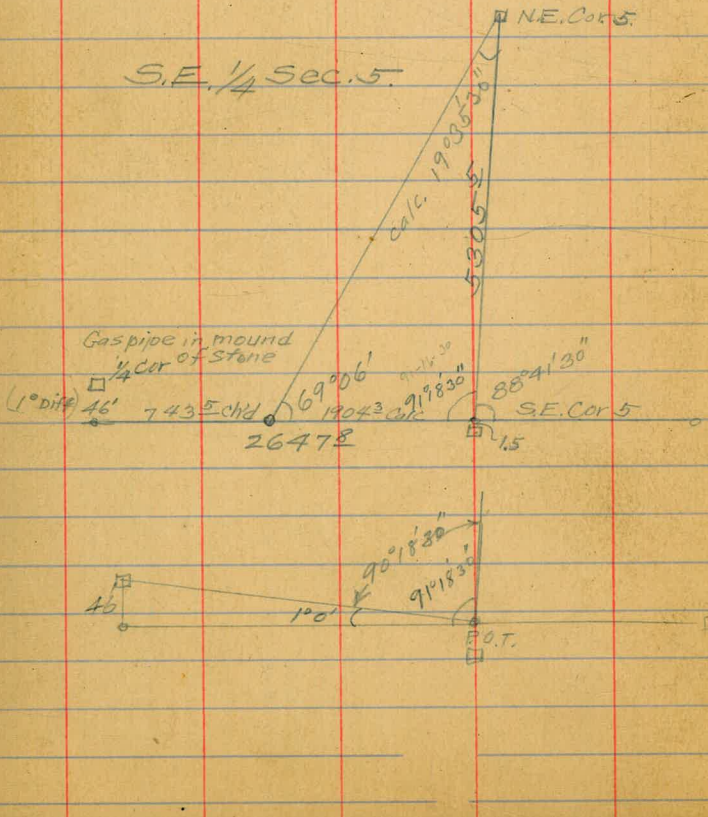 N.E. Cor 5.
S.E. 1/4 Sec. 5.
calc. 19°35'30"
5305 5
Gaspipe in mound
1/4 Cor of Stone
(1° Diff) 46' 743 5 Ch'd 69°06' 1904 3 Calc 91°18'30" 88°41'30" S.E. Cor 5
2647 8
1.5
90°18'30"
91°18'30"
46' 1°0'
P.O.T.